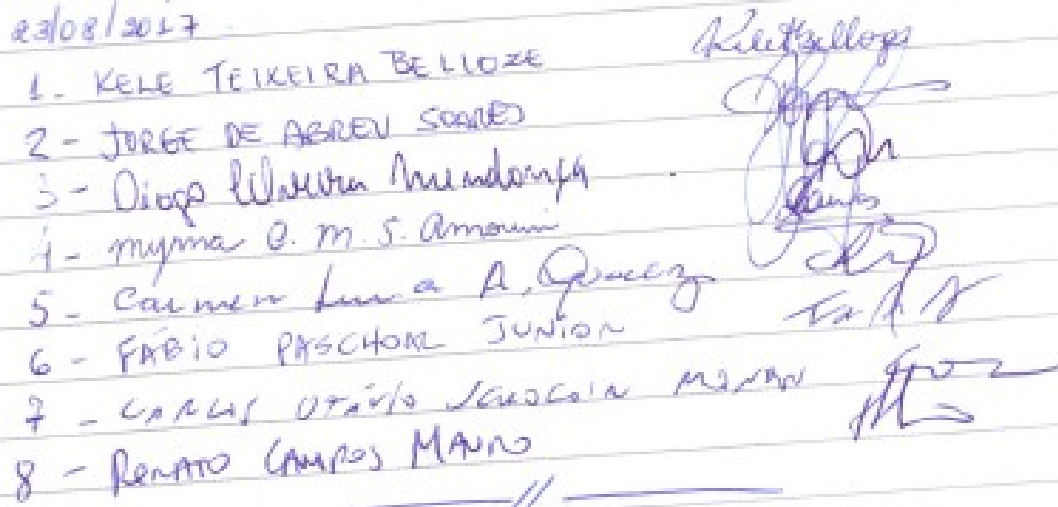 23/08/2017
1. KELE TEIXEIRA BELLOZE
2 - JORGE DE ABREU SOARES
3 - Diogo Silveira Mendonça
4 - myrna C. m. S. Amorim
5 - Carmen Lucia A. Queiroz
6 - FÁBIO PASCHOAL JUNIOR
7 - CARLOS OTÁVIO
8 - RENATO CAMPOS MAURO